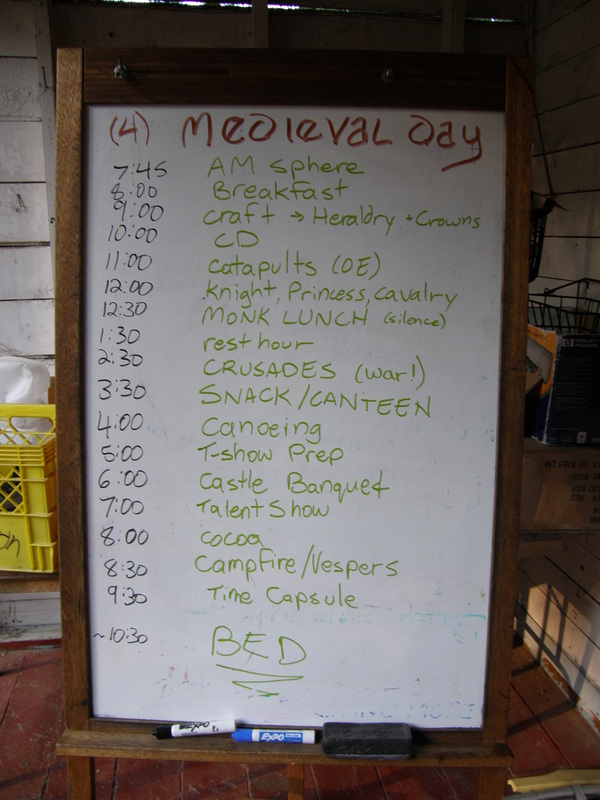 (4) Medieval Day
7:45 AM Sphere
8:00 Breakfast
9:00 craft → Heraldry + Crowns
10:00 CD
11:00 catapults (OE)
12:00 Knight, Princess, cavalry
12:30 MONK LUNCH (silence)
1:30 rest hour
2:30 CRUSADES (war!)
3:30 SNACK/CANTEEN
4:00 Canoeing
5:00 T-show Prep
6:00 Castle Banquet
7:00 Talent Show
8:00 cocoa
8:30 Campfire/Vespers
9:30 Time Capsule
~10:30 BED
EXPO
EXPO